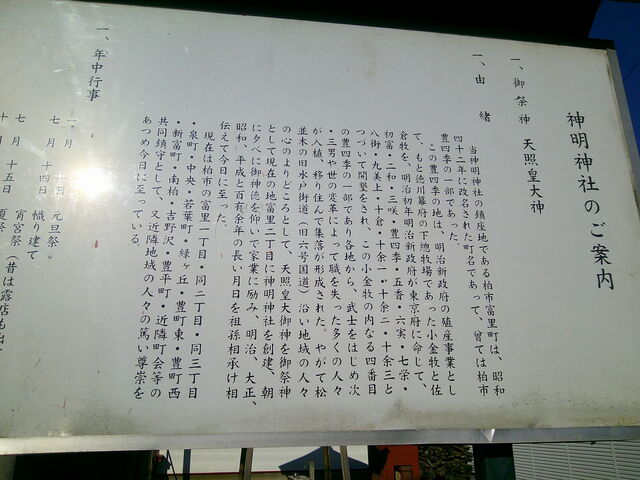 神明神社のご案内
一、御祭神 天照皇大神
一、由緒
当神明神社の鎮座地である柏市富里町は、昭和
四十二年に改名された町名であって、曾ては柏市
豊四季の一部であった。
この豊四季の地は、明治新政府の殖産事業とし
て、もと徳川幕府の下総牧場であった小金牧と佐
倉牧を、明治初年明治新政府が東京府に命じて、
初富・二和・三咲・豊四季・五香・六実・七栄・
八街・九美上・十倉・十余一・十余二・十余三と
つづいて開墾をされ、この小金牧の内なる四番目
の豊四季の一部であり各地から、武士をはじめ次
・三男や世の変革によって職を失った多くの人々
が入植、移り住んで集落が形成された。やがて松
並木の旧水戸街道(旧六号国道)沿い地域の人々
の心のよりどころとして、天照皇大御神を御祭神
として現在の地富里二丁目に神明神社を創建、朝
に夕べに御神徳を仰いで家業に励み、明治、大正、
昭和、平成と百有余年の長い月日を祖孫相承け相
伝えて今日に至った。
現在は柏市の富里一丁目・同二丁目・同三丁目
・泉町・中央・若葉町・緑ヶ丘・豊町東・豊町西
・新富町・南柏・吉野沢・豊平町・近隣町会等の
共同鎮守として、又近隣地域の人々の篤い尊崇を
あつめ今日に至っている。
一、年中行事
一月 一日 元旦祭
七月 十四日 幟り建て
七月 十五日 宵宮祭(昔は露店も出